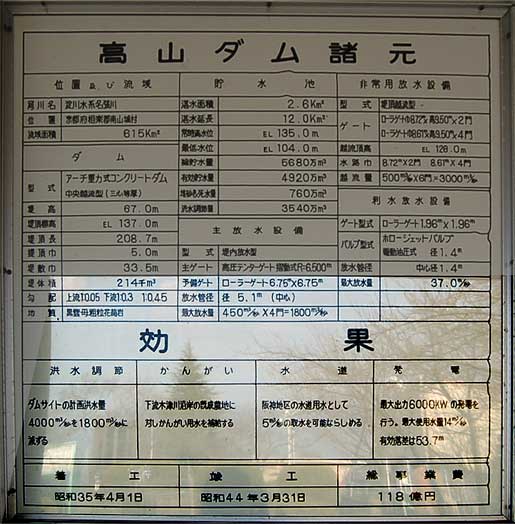 高山ダム諸元
位置及び流域
河川名 淀川水系名張川
位置 京都府相楽郡南山城村
流域面積 615Km²
ダム
型式 アーチ重力式コンクリートダム
中央越流型(三心等厚)
堤高 67.0m
堤頂標高 EL 137.0m
堤頂長 208.7m
堤頂巾 5.0m
堤敷巾 33.5m
堤体積 214千m³
勾配 上流1:0.05 下流1:0.3 1:0.45
地質 黒雲母粗粒花崗岩
貯水池
湛水面積 2.6Km²
湛水延長 12.0Km
常時満水位 EL 135.0m
最低水位 EL 104.0m
総貯水量 5680万m³
有効貯水量 4920万m³
堆砂及死水量 760万m³
洪水調節量 3540万m³
主放水設備
型式 堤内放水型
主ゲート 高圧テンターゲート摺動式R=6.500m
予備ゲート ローラーゲート6.75m×6.75m
放水管径 径5.1m(中心)
最大放水量 450m³/s×4門=1800m³/s
非常用放水設備
型式 堤頂越流型
ゲート ローラゲート巾8.72m×高9.50m×2門
ローラゲート巾8.61m×高9.50m×4門
越流頂高 EL 126.0m
水路巾 8.72m×2門 8.61m×4門
越流量 500m³/s×6門=3000m³/s
利水放水設備
ゲート型式 ローラーゲート1.96m×1.96m
バルブ型式 ホロージェットバルブ
電動油圧式 径1.4m
放水管径 中心径1.4m
最大放水量 37.0m³/s
効果
洪水調節
ダムサイトの計画洪水量
4000m³/sを1800m³/sに
減ずる
かんがい
下流木津川沿岸の既成農地に
対しかんがい用水を補給する
水道
阪神地区の水道用水として
5m³/sの取水を可能ならしめる
発電
最大出力6000KWの発電を
行う。最大使用水量14m³/s
有効落差は53.7m
着工 竣工 総事業費
昭和35年4月1日 昭和44年3月31日 118億円